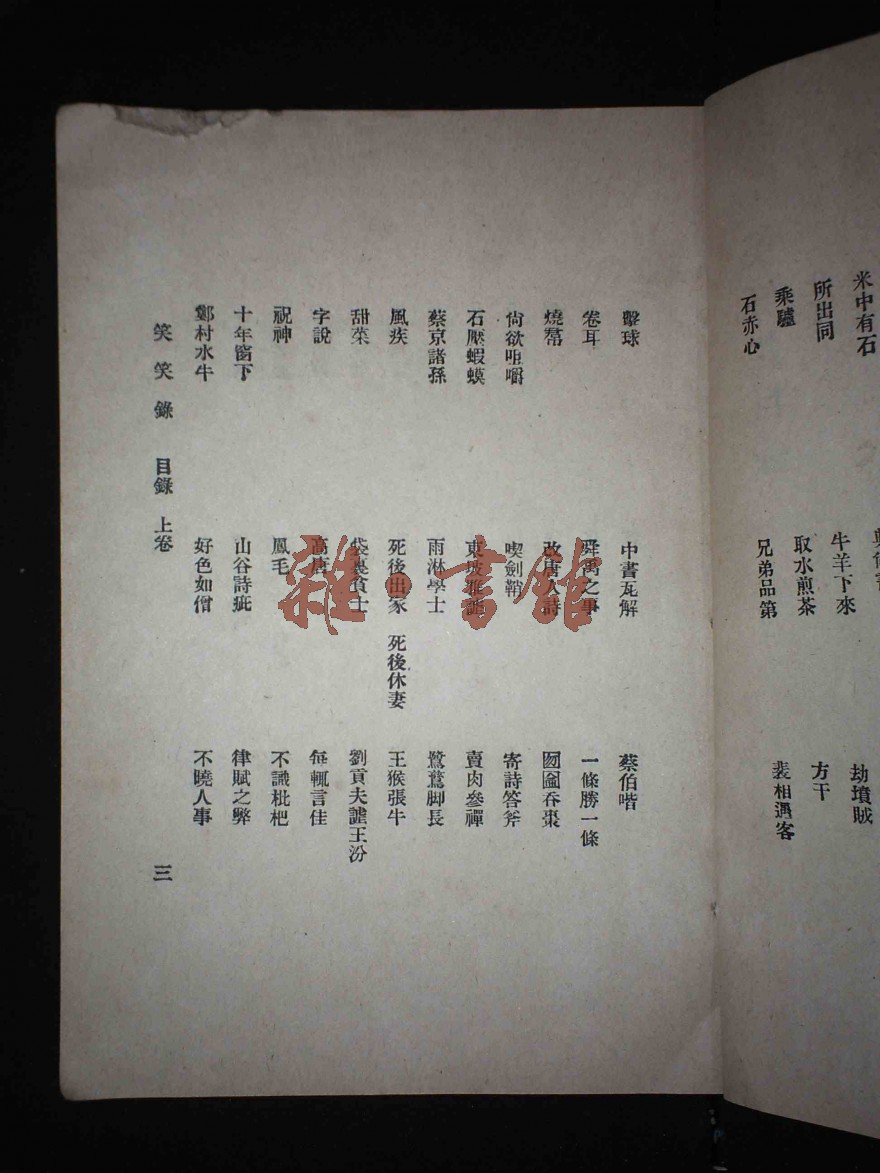 米中有石
所出同　牛羊下來　劫墳賊
乘驢　取水煎茶　方干
石赤心　兄弟品第　裴相遇客
擊球　中書瓦解　蔡伯喈
卷耳　舜禹之事　一條勝一條
燒幇　改唐人詩　囫圇吞棗
尙欲咀嚼　喫劍鞘　寄詩答斧
石壓蝦蟆　東坡雅謔　賣肉參禪
蔡京諸孫　雨淋學士　鷺鶿脚長
風疾　死後出家　死後休妻　王猴張牛
甜菜　袋裏貧士　劉貢夫謔王汾
字說　高唐　每輒言佳
祝神　鳳毛　不識枇杷
十年窗下　山谷詩疵　律賦之弊
鄭村水牛　好色如僧　不曉人事
笑笑錄　目錄　上卷　三
雜·書館